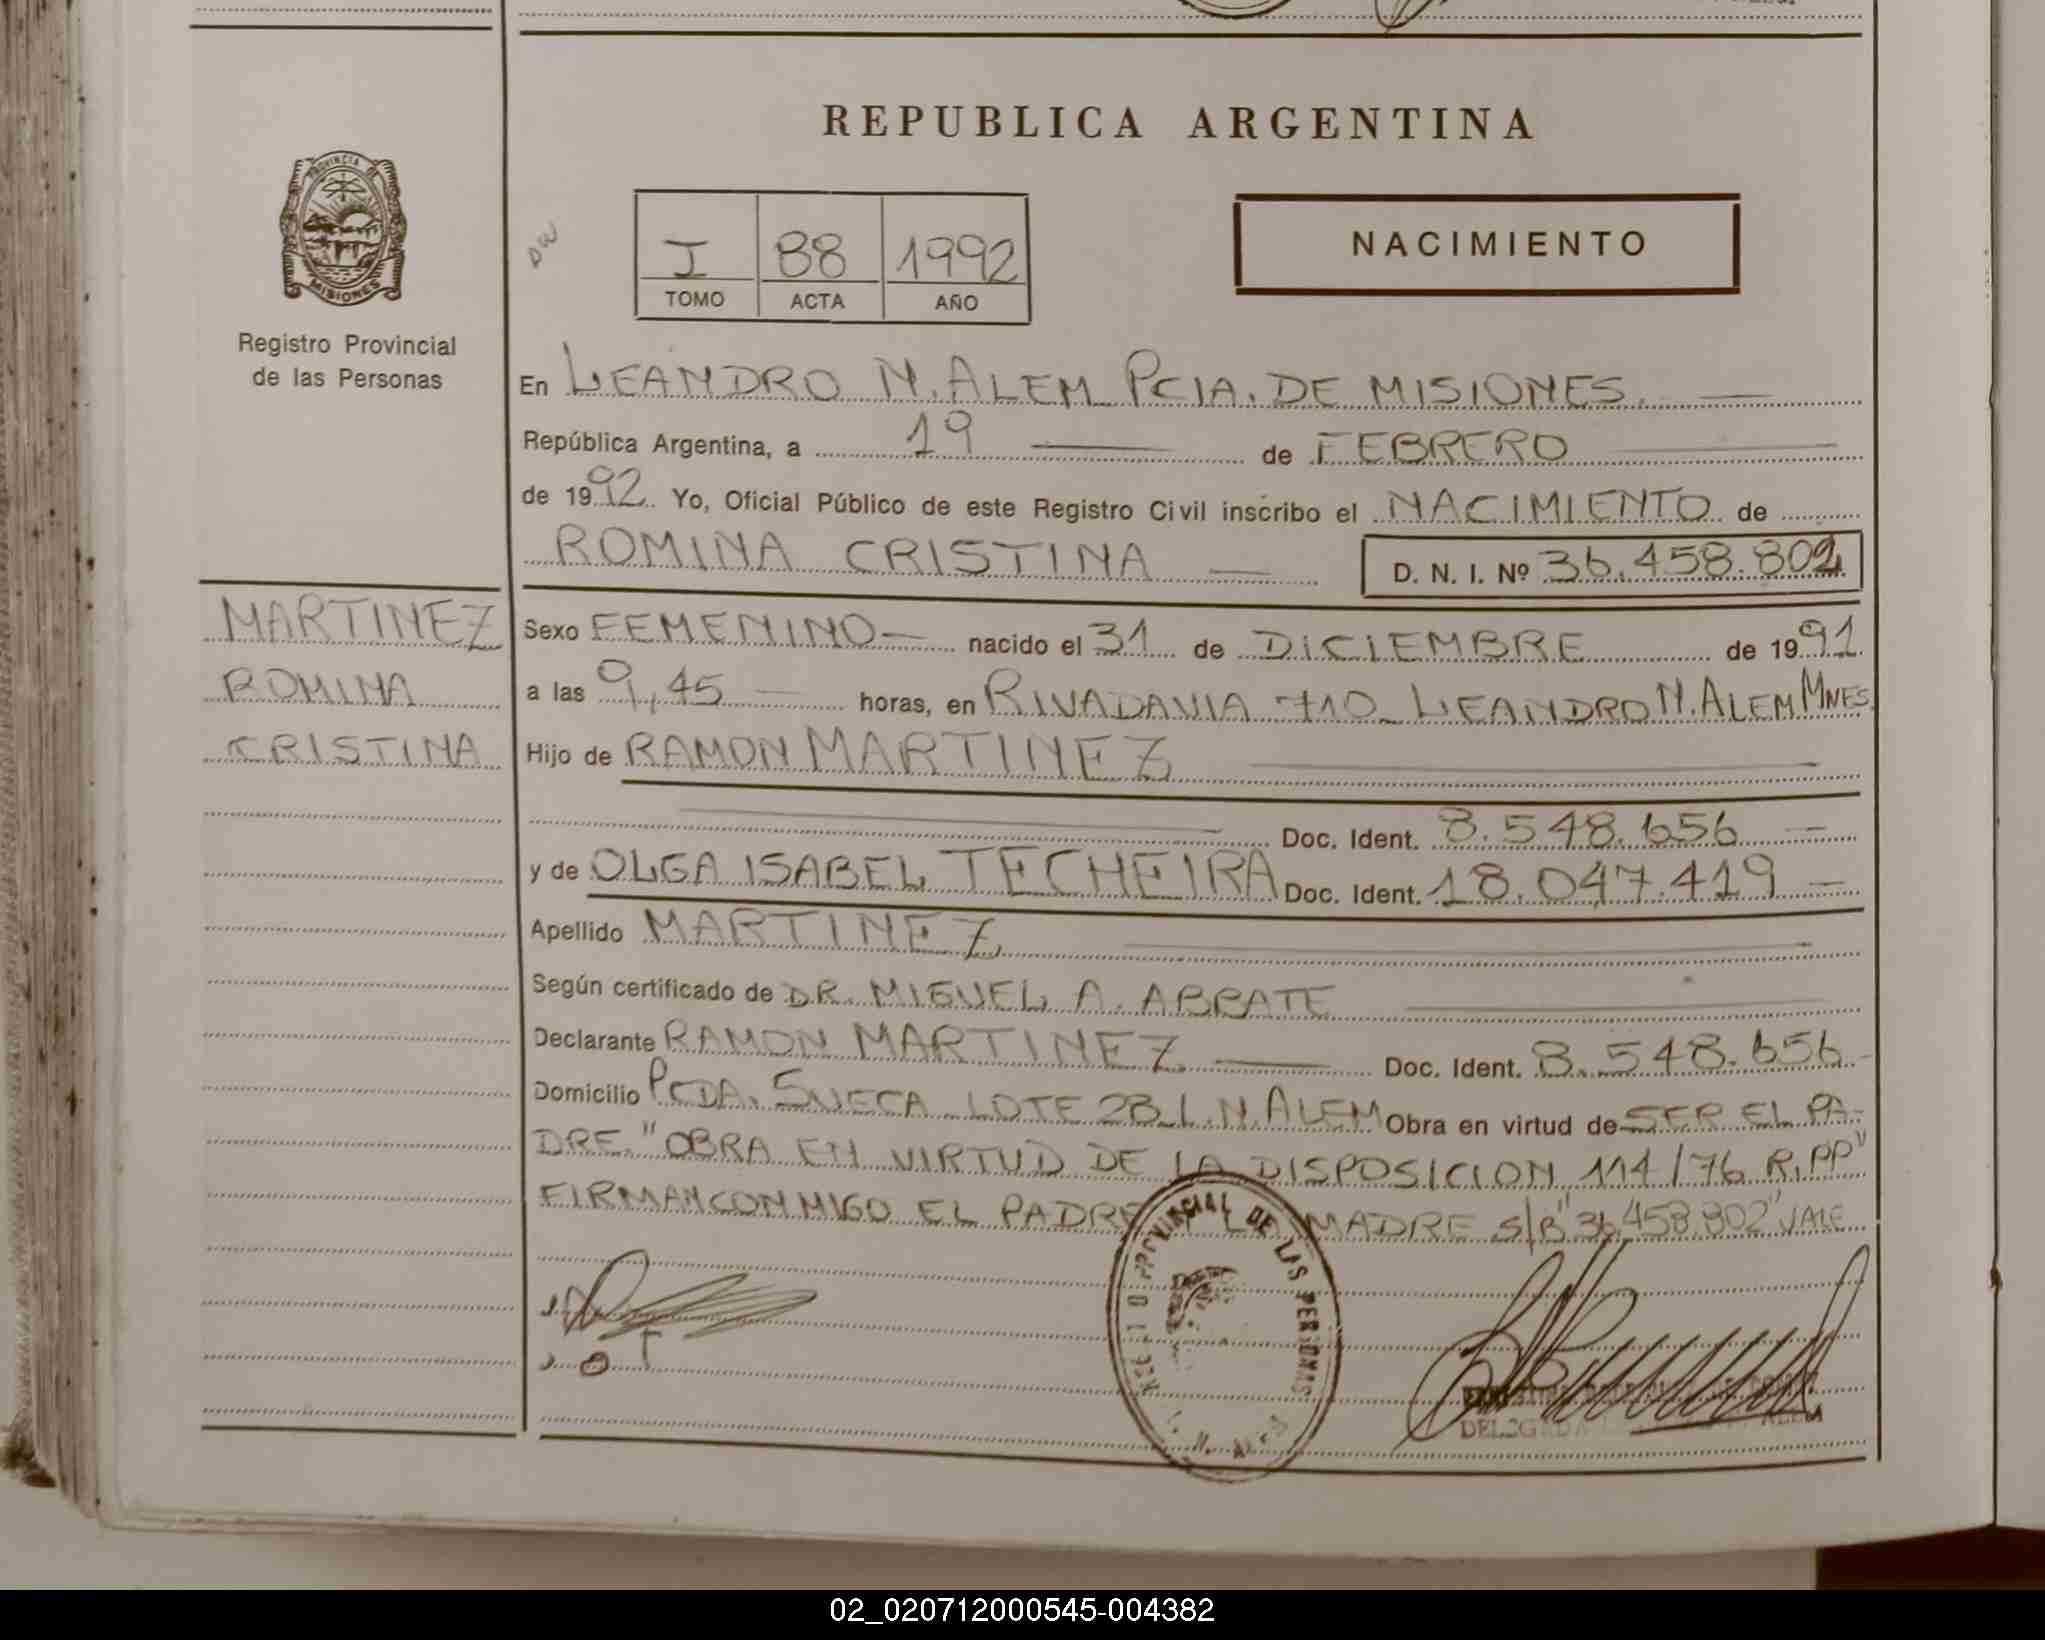 REPUBLICA ARGENTINA
PROVINCIA DE
MISIONES
Registro Provincial
de las Personas
I 88 1992
TOMO ACTA AÑO
NACIMIENTO
En LEANDRO N. ALEM PCIA. DE MISIONES.
República Argentina, a 19 de FEBRERO
de 1992 Yo, Oficial Público de este Registro Civil inscribo el NACIMIENTO de
ROMINA CRISTINA D. N. I. Nº 36.458.802
MARTINEZ
ROMINA
CRISTINA
Sexo FEMENINO nacido el 31 de DICIEMBRE de 1991
a las 9,45 horas, en RIVADAVIA 710 LEANDRO N. ALEM MNES.
Hijo de RAMON MARTINEZ
Doc. Ident. 8.548.656
y de OLGA ISABEL TECHEIRA Doc. Ident. 18.047.419
Apellido MARTINEZ
Según certificado de DR. MIGUEL A. ABBATE
Declarante RAMON MARTINEZ Doc. Ident. 8.548.656
Domicilio PCDA. SUECA LOTE 28 L.N. ALEM Obra en virtud de SER EL PA-
DRE. "OBRA EN VIRTUD DE LA DISPOSICION 114/76 R.PP"
FIRMAN CONMIGO EL PADRE Y LA MADRE S/B "36.458.802" VALE
PROVINCIAL DE LAS PERSONAS
02_020712000545-004382